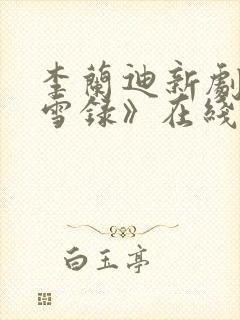 李蘭迪新劇
雪録》在綫
白玉亭